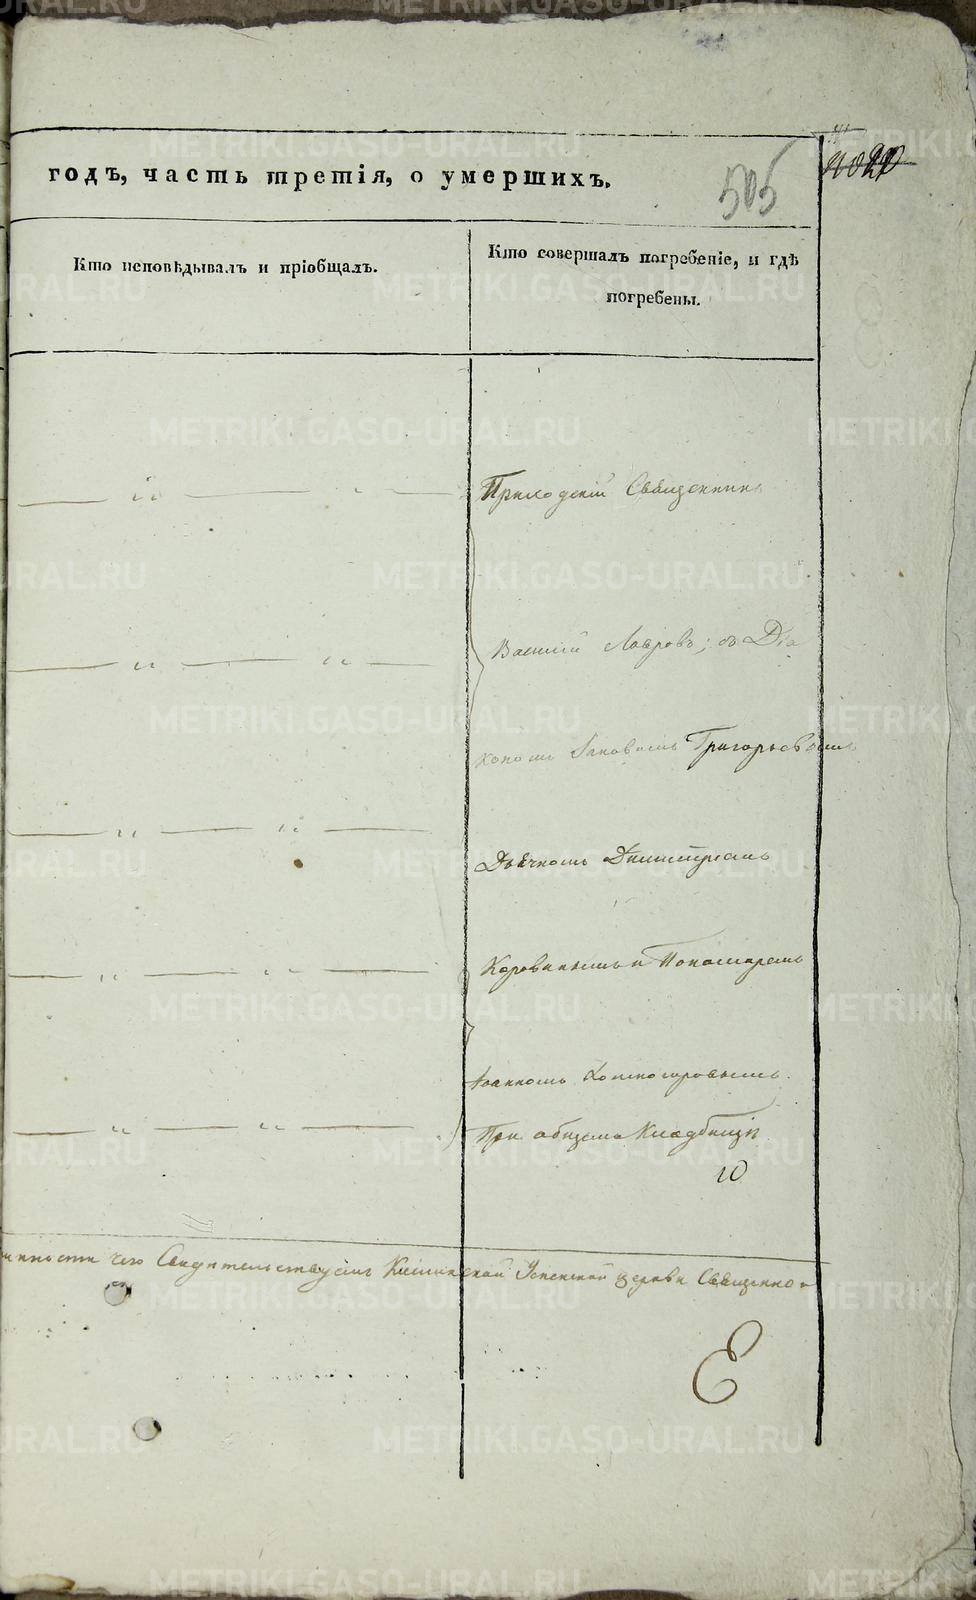 годъ, часть третія, о умершихъ.
505
Кто исповѣдывалъ и пріобщалъ.
Кто совершалъ погребеніе, и гдѣ
погребены.
Приходскій Священникъ
Василій Лавровъ; съ Діа
кономъ Іаковомъ Григорьевымъ
Дьячкомъ Димитріемъ
Коровинымъ и Пономаремъ
Іоанномъ
При общемъ Кладбищѣ
10
чего Свидѣтельствуетъ Успенской церкви Священно
METRIKI.GASO-URAL.RU